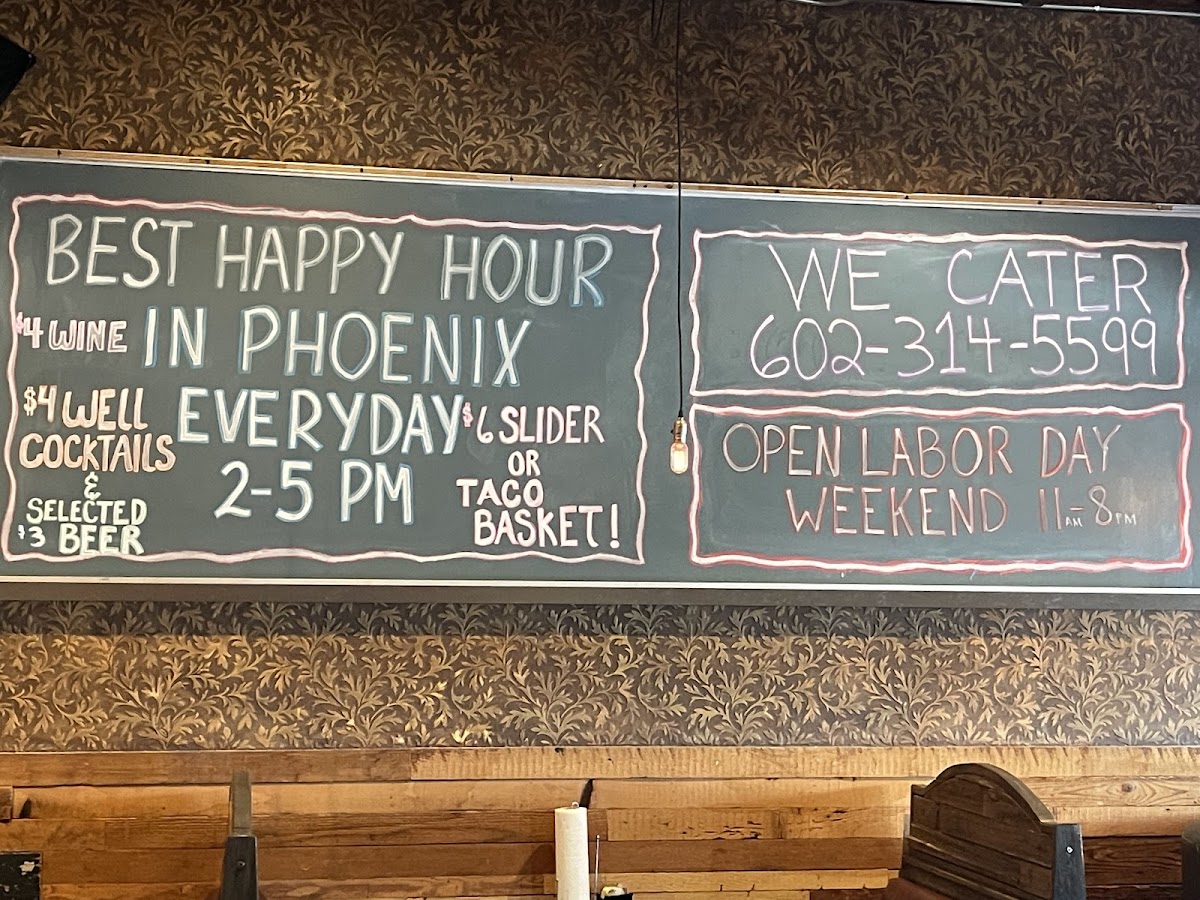 BEST HAPPY HOUR
IN PHOENIX
EVERYDAY
2-5 PM
$4 WINE
$4 WELL
COCKTAILS
&
SELECTED
$3 BEER
$6 SLIDER
OR
TACO
BASKET!
WE CATER
602-314-5599
OPEN LABOR DAY
WEEKEND 11AM-8PM